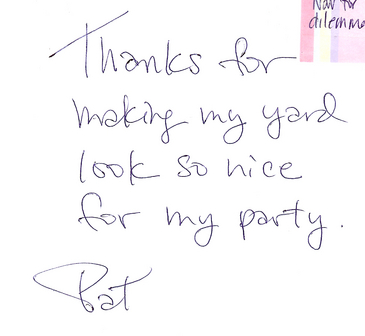 dilemma
Thanks for
making my yard
look so nice
for my party.
Pat